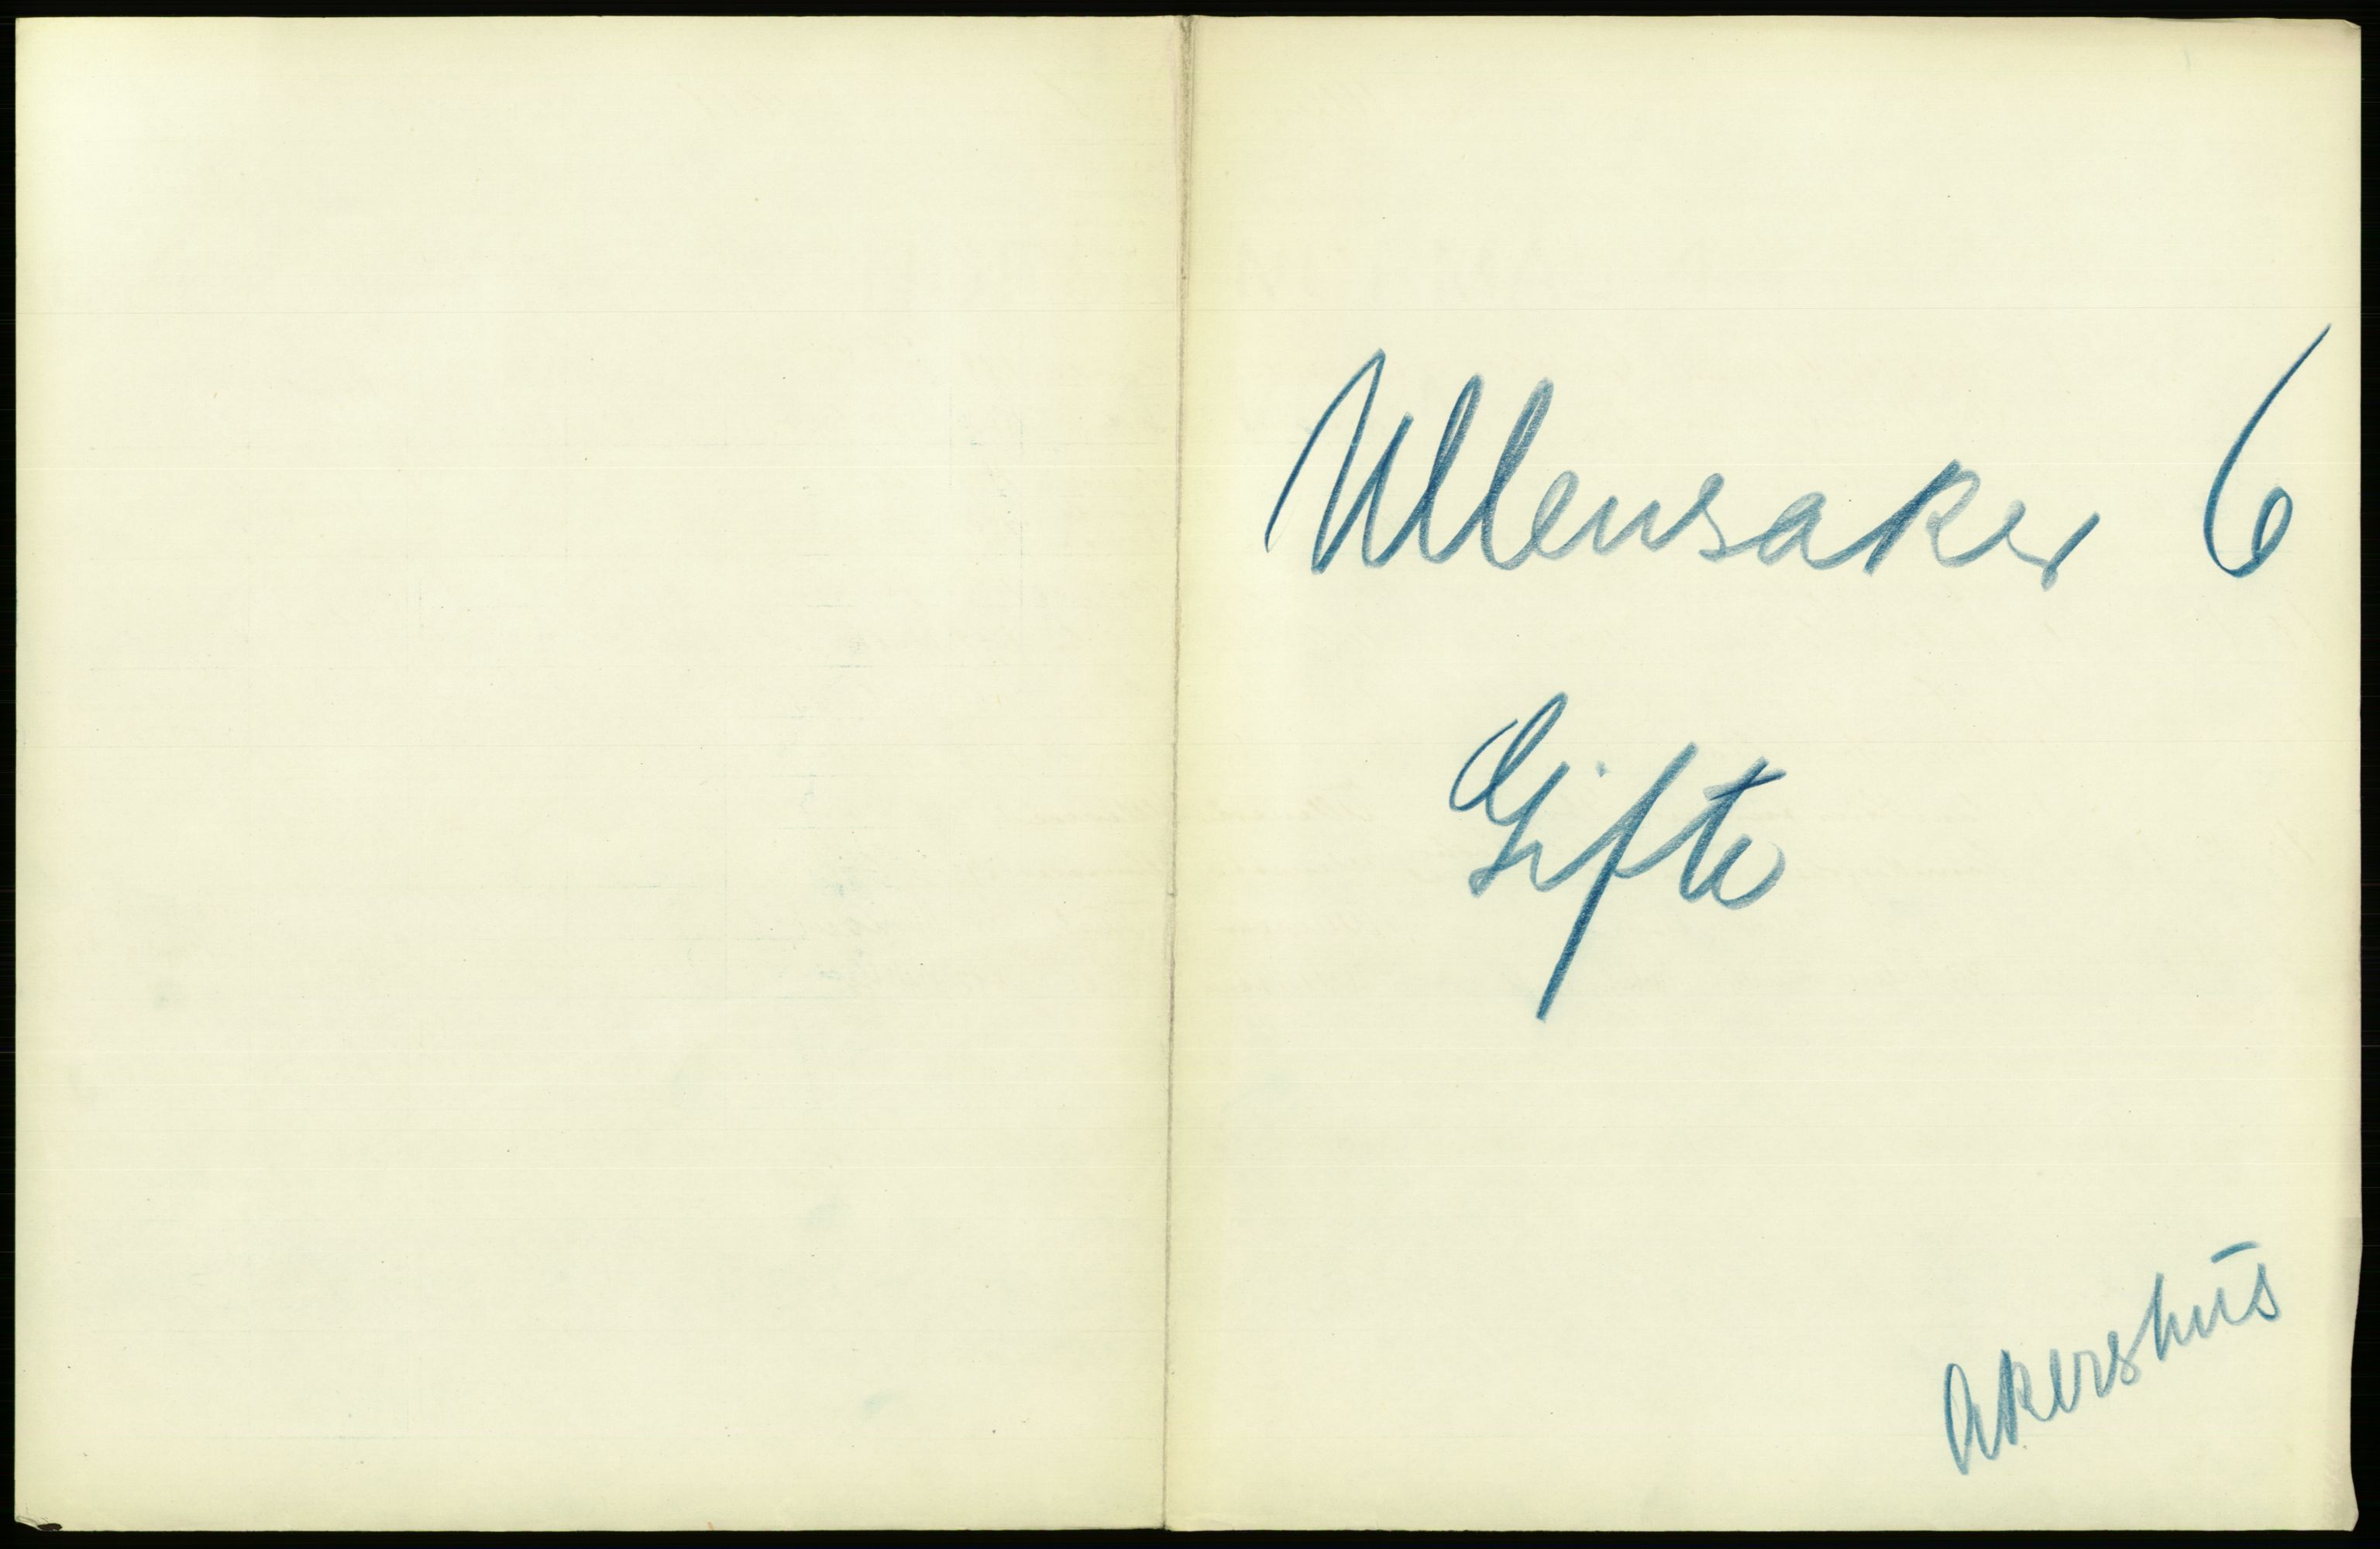 Ullensaker 6
Gifte
Akershus